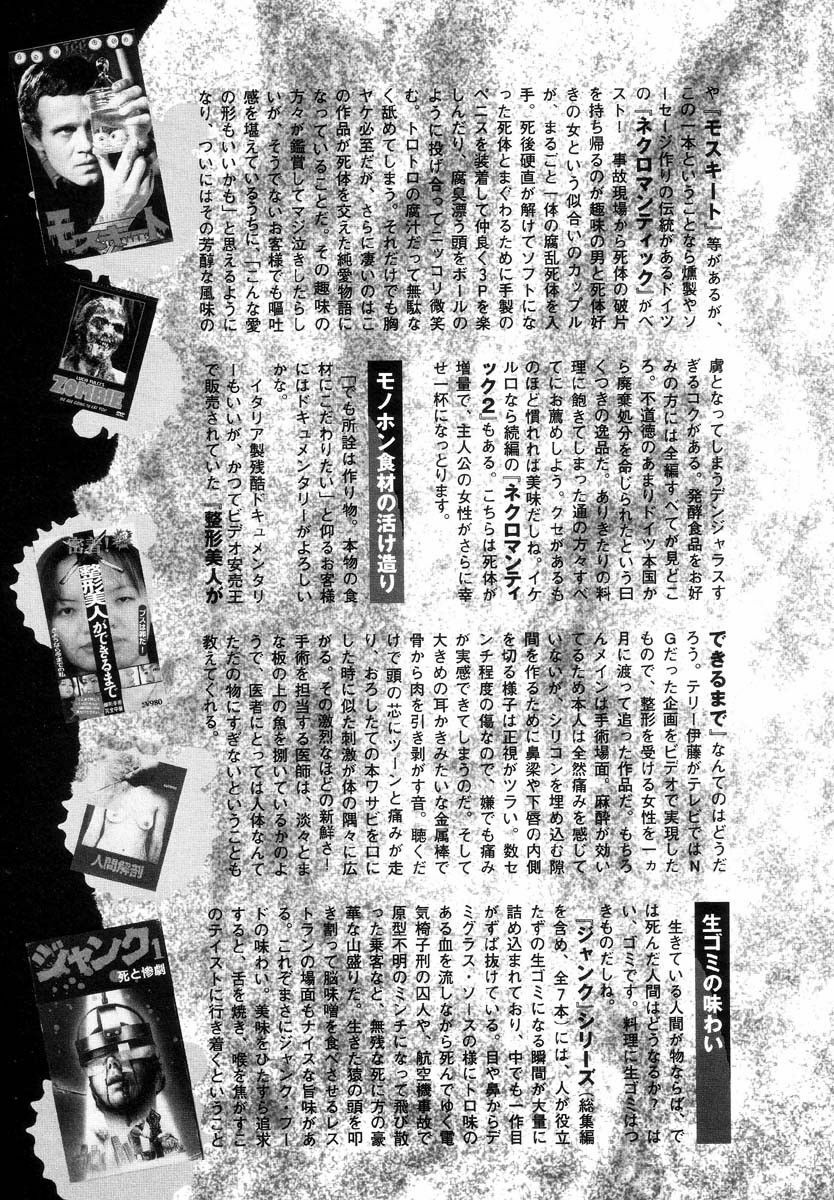 や『モスキート』等があるが、
この一本ということなら燻製やソ
ーセージ作りの伝統があるドイツ
の『ネクロマンティック』がベ
スト！　事故現場から死体の破片
を持ち帰るのが趣味の男と死体好
きの女という似合いのカップル
が、まるごと一体の腐乱死体を入
手。死後硬直が解けてソフトにな
った死体とまぐわるために手製の
ペニスを装着して仲良く３Ｐを楽
しんだり、腐臭漂う頭をボールの
ように投げ合ってニッコリ微笑
む。トロトロの腐汁だって無駄な
く舐めてしまう。それだけでも胸
ヤケ必至だが、さらに凄いのはこ
の作品が死体を交えた純愛物語に
なっていることだ。その趣味の
方々が鑑賞してマジ泣きしたらし
いが、そうでないお客様でも嘔吐
感を堪えているうちに、「こんな愛
の形もいいかも」と思えるように
なり、ついにはその芳醇な風味の
虜となってしまうデンジャラスす
ぎるコクがある。発酵食品をお好
みの方には全編すべてが見どこ
ろ。不道徳のあまりドイツ本国か
ら廃棄処分を命じられたという曰
くつきの逸品だ。ありきたりの料
理に飽きてしまった通の方々すべ
てにお薦めしよう。クセがあるも
のほど慣れれば美味だしね。イケ
ルロなら続編の『ネクロマンティ
ック２』もある。こちらは死体が
増量で、主人公の女性がさらに幸
せ一杯になっとります。
モノホン食材の活け造り
「でも所詮は作り物。本物の食
材にこだわりたい」と仰るお客様
にはドキュメンタリーがよろしい
かな。
イタリア製残酷ドキュメンタリ
ーもいいが、かつてビデオ安売王
で販売されていた『整形美人が
できるまで』なんてのはどうだ
ろう。テリー伊藤がテレビではＮ
Ｇだった企画をビデオで実現した
もので、整形を受ける女性を一ヵ
月に渡って追った作品だ。もちろ
んメインは手術場面。麻酔が効い
てるため本人は全然痛みを感じて
いないが、シリコンを埋め込む隙
間を作るために鼻梁や下唇の内側
を切る様子は正視がツラい。数セ
ンチ程度の傷なので、嫌でも痛み
が実感できてしまうのだ。そして
大きめの耳かきみたいな金属棒で
骨から肉を引き剥がす音。聴くだ
けで頭の芯にツーンと痛みが走
り、おろしたての本ワサビを口に
した時に似た刺激が体の隅々に広
がる。その激烈なほどの新鮮さ！
手術を担当する医師は、淡々とま
な板の上の魚を捌いているかのよ
うで、医者にとっては人体なんて
ただの物にすぎないということも
教えてくれる。
生ゴミの味わい
生きている人間が物ならば、で
は死んだ人間はどうなるか？　は
い、ゴミです。料理に生ゴミはつ
きものだしね。
『ジャンク』シリーズ（総集編
を含め、全７本）には、人が役立
たずの生ゴミになる瞬間が大量に
詰め込まれており、中でも一作目
がずば抜けている。目や鼻からデ
ミグラス・ソースの様にトロ味の
ある血を流しながら死んでゆく電
気椅子刑の囚人や、航空機事故で
原型不明のミンチになって飛び散
った乗客など、無残な死に方の豪
華な山盛りだ。生きた猿の頭を叩
き割って脳味噌を食べさせるレス
トランの場面もナイスな旨味があ
る。これぞまさにジャンク・フー
ドの味わい。美味をひたすら追求
すると、舌を焼き、喉を焦がすこ
のテイストに行き着くということ
モスキート
LUCIO FULCI'S
ZOMBIE
WE ARE GOING TO EAT YOU!
DVD
整形美人ができるまで
ブスは罪だー
¥980
人間解剖
ジャンク1
死と惨劇